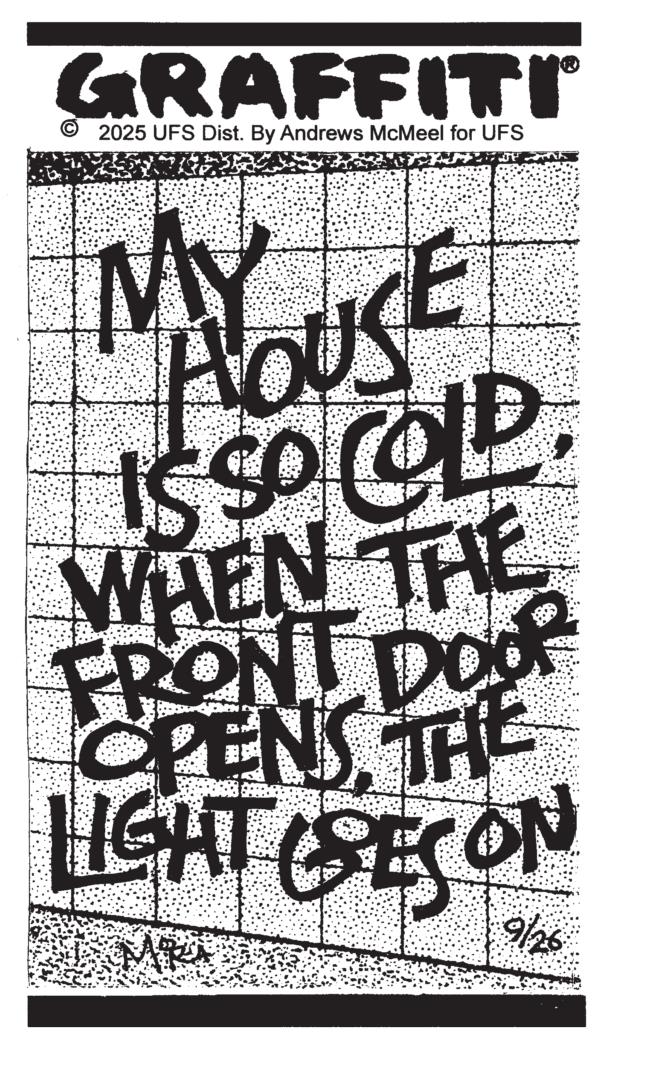 GRAFFITI®
© 2025 UFS Dist. By Andrews McMeel for UFS
MY
HOUSE
IS SO COLD,
WHEN THE
FRONT DOOR
OPENS, THE
LIGHT GOES ON
9/26
MORA